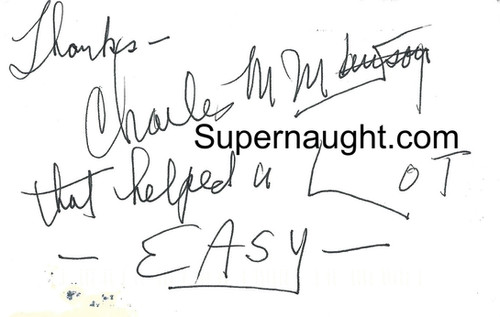 Thanks -
Charles M Manson
Supernaught.com
that helped a LOT
- EASY -